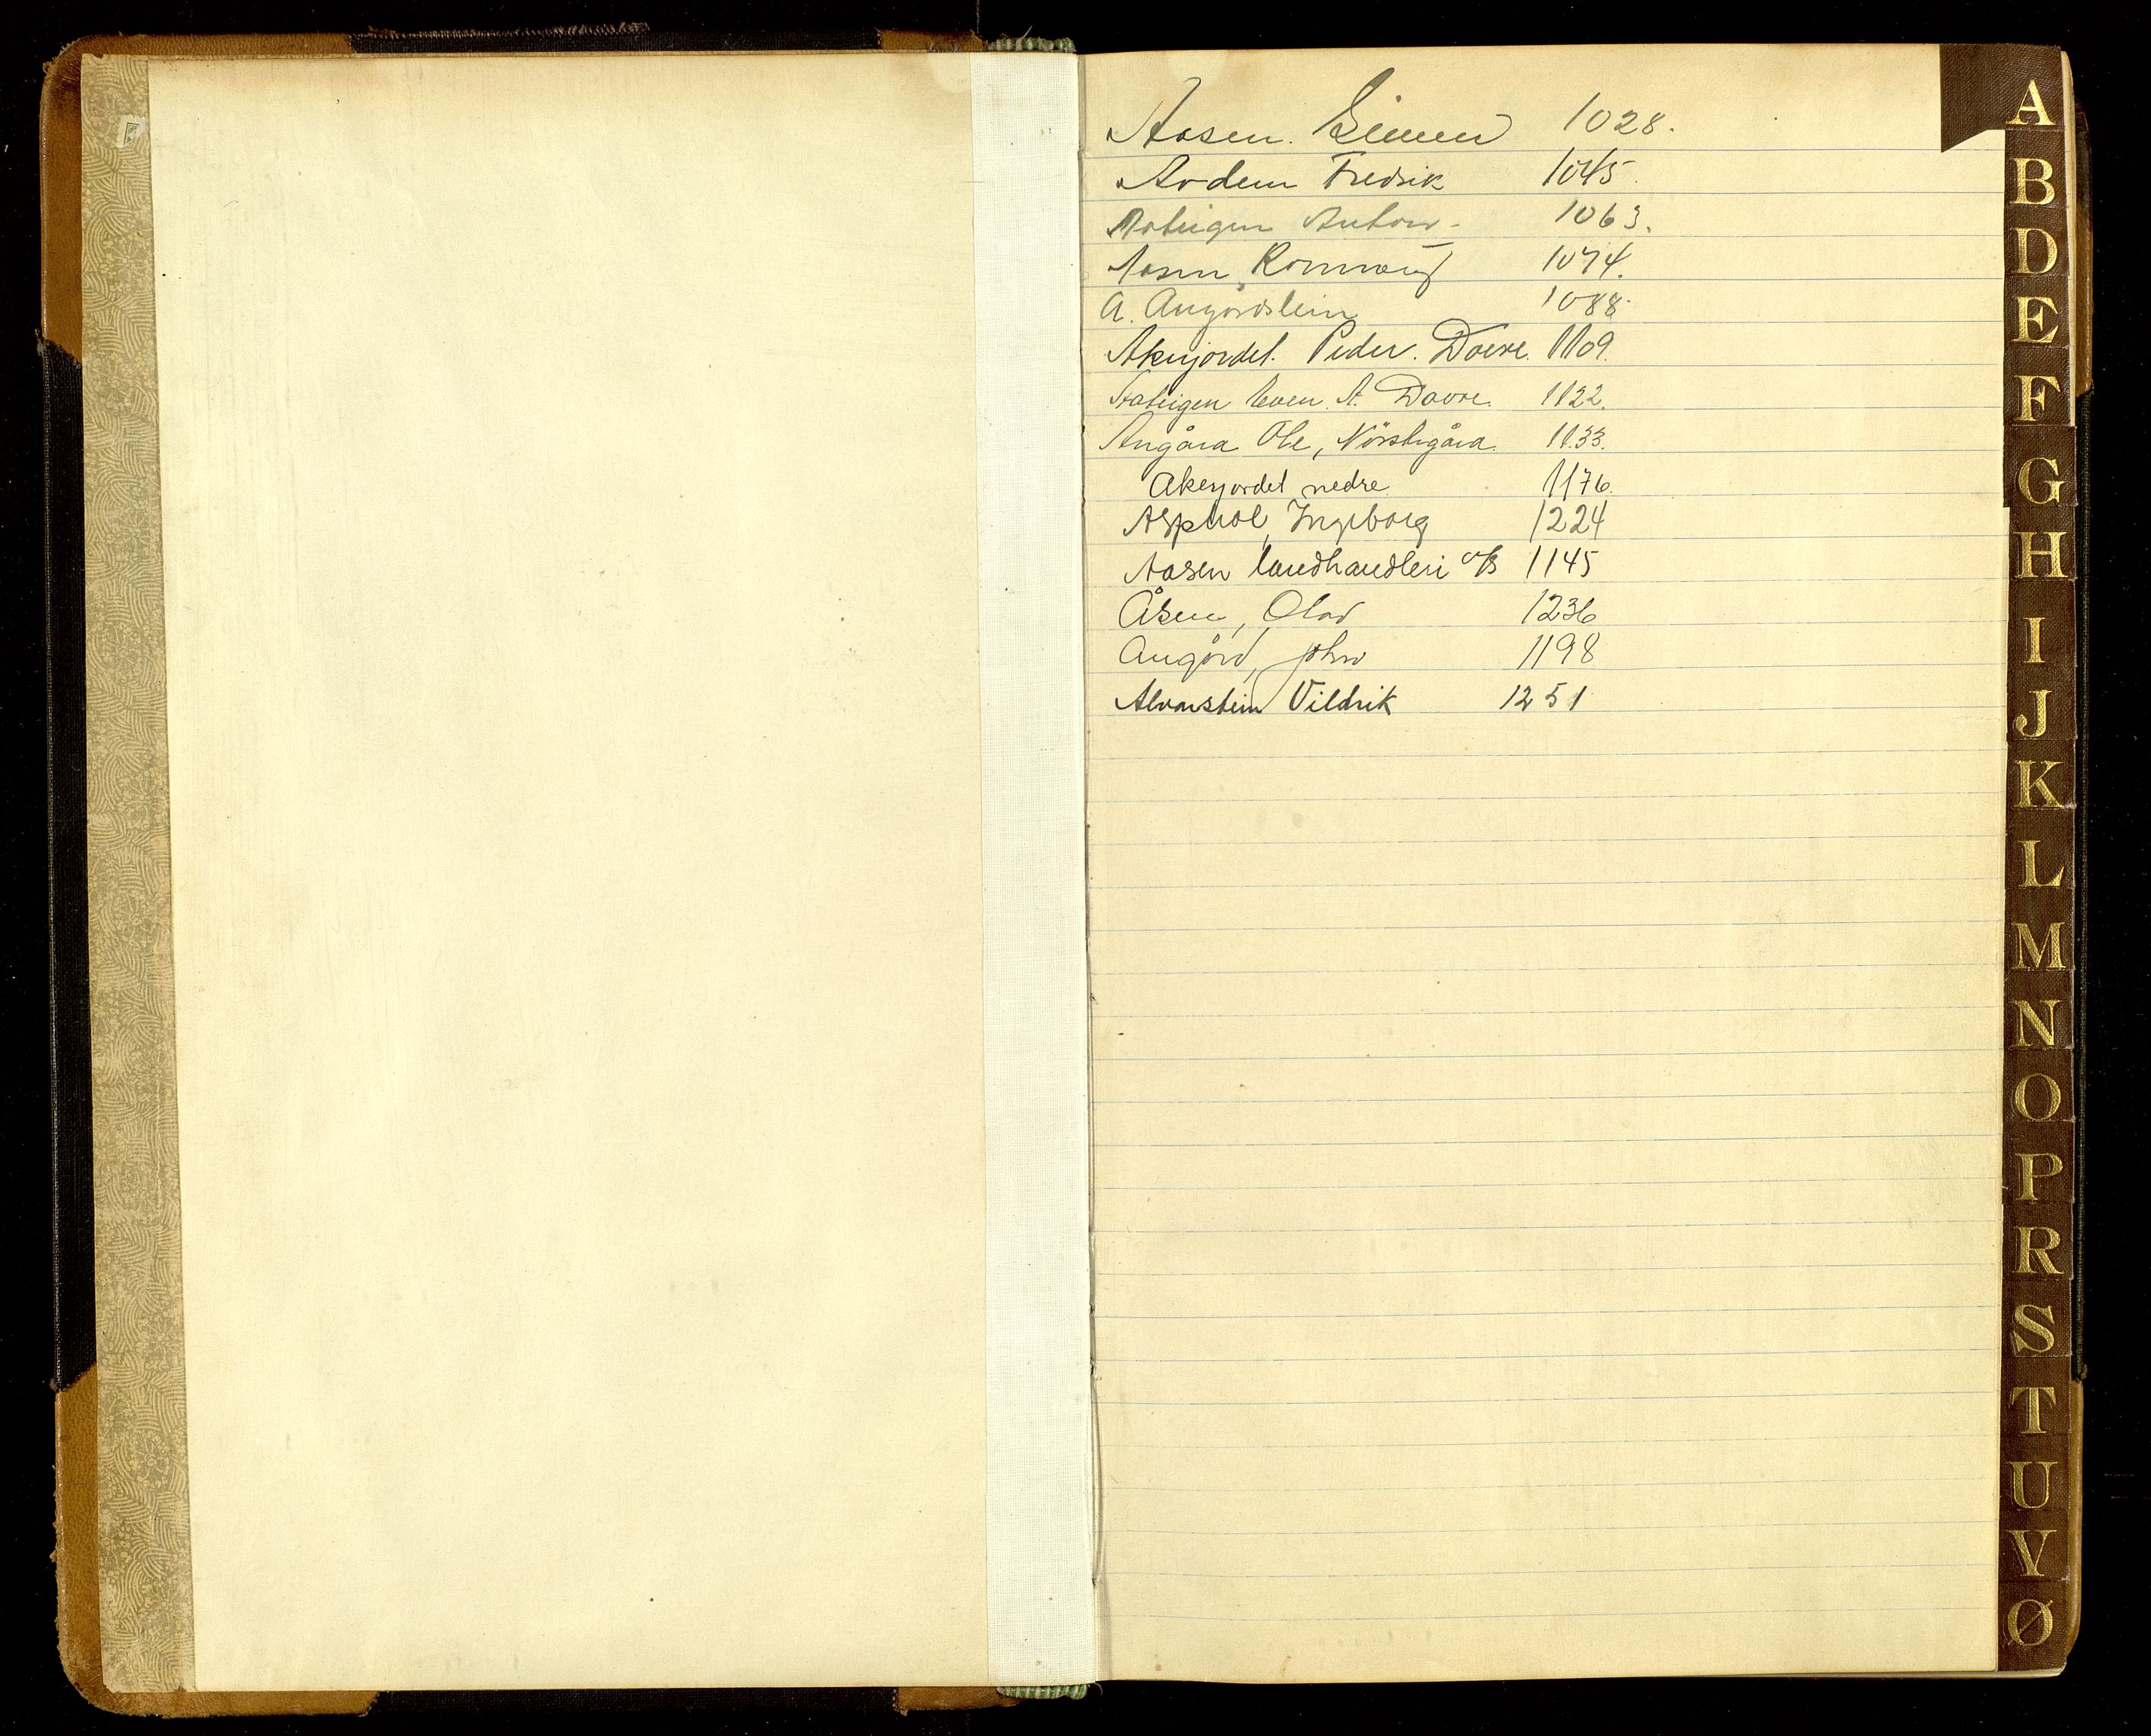 Aasen. Simen 1028.
Ardem Fredrik 1045.
Anton 1063.
Aasen, 1074.
A. Angårdslein 1088.
Akerjordet. Peder. Dovre. 1109.
Even A. Dovre. 1122.
Angåra Ole, Nörstegåra. 1133.
Akerjordet nedre 1176.
Asphol, Ingeborg 1224
Aasen landhandleri a/s 1145
Åsen, Olav 1236
Angård, John 1198
Alvanstein Vildrik 1251
A
B
D
E
F
G
H
I
J
K
L
M
N
O
P
R
S
T
U
V
Ø